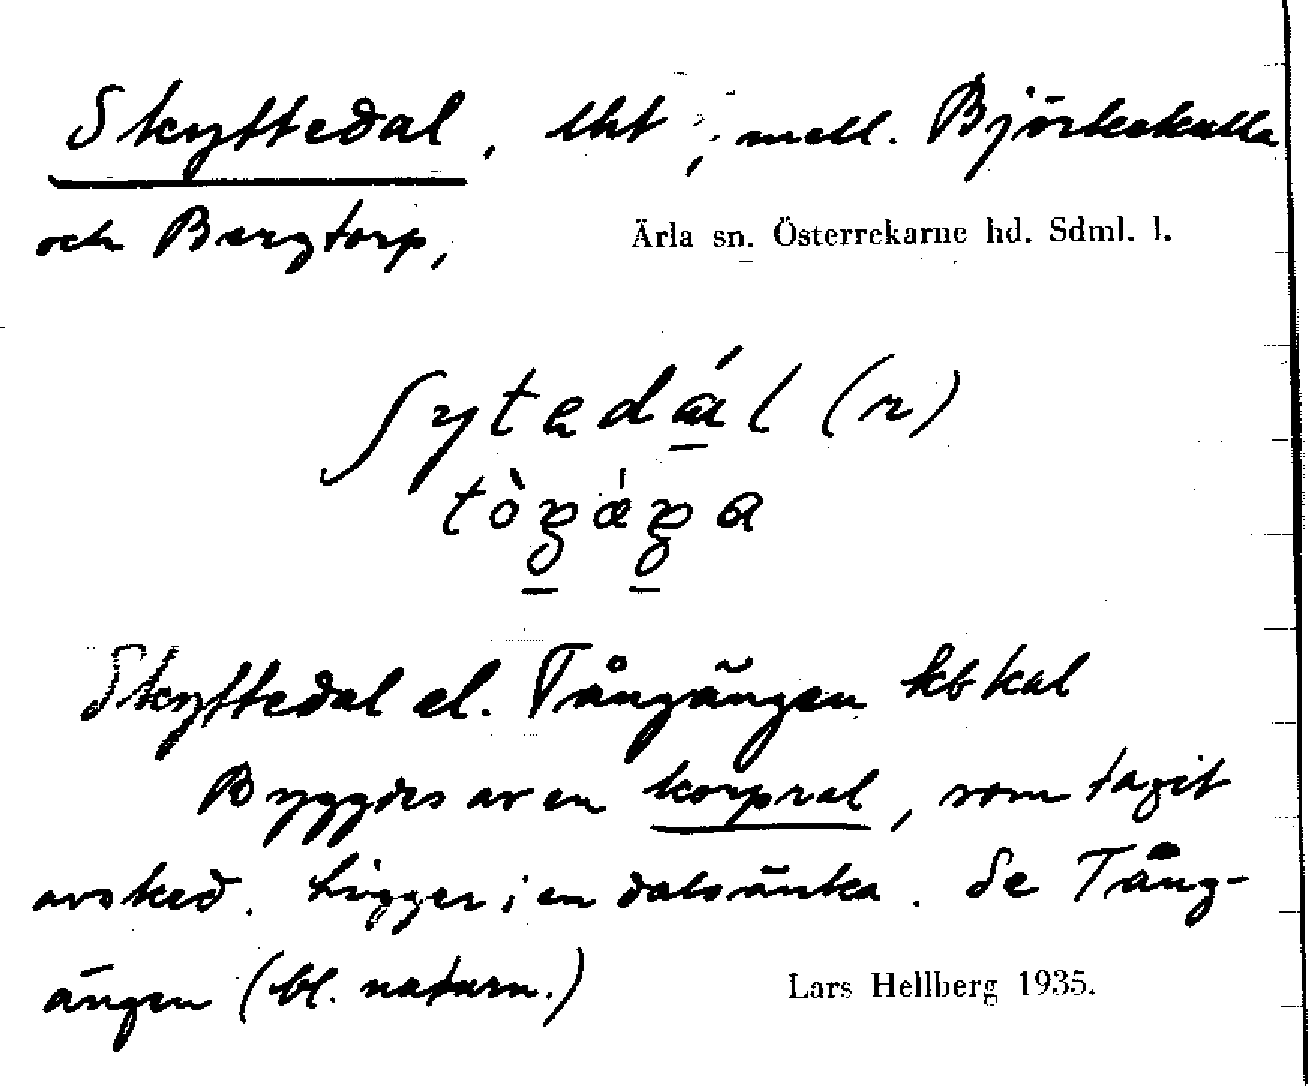 Skyttedal, lht, mell. Björkekulla
och Bergtorp,
Ärla sn. Österrekarne hd. Sdml. l.
ʃytedál (n)
Skyttedal el. Tångängen kbkal
Byggdes av en korpral, som tagit
avsked. Ligger i en dalsänka. Se Tång-
ängen (bl. naturn.)
Lars Hellberg 1935.